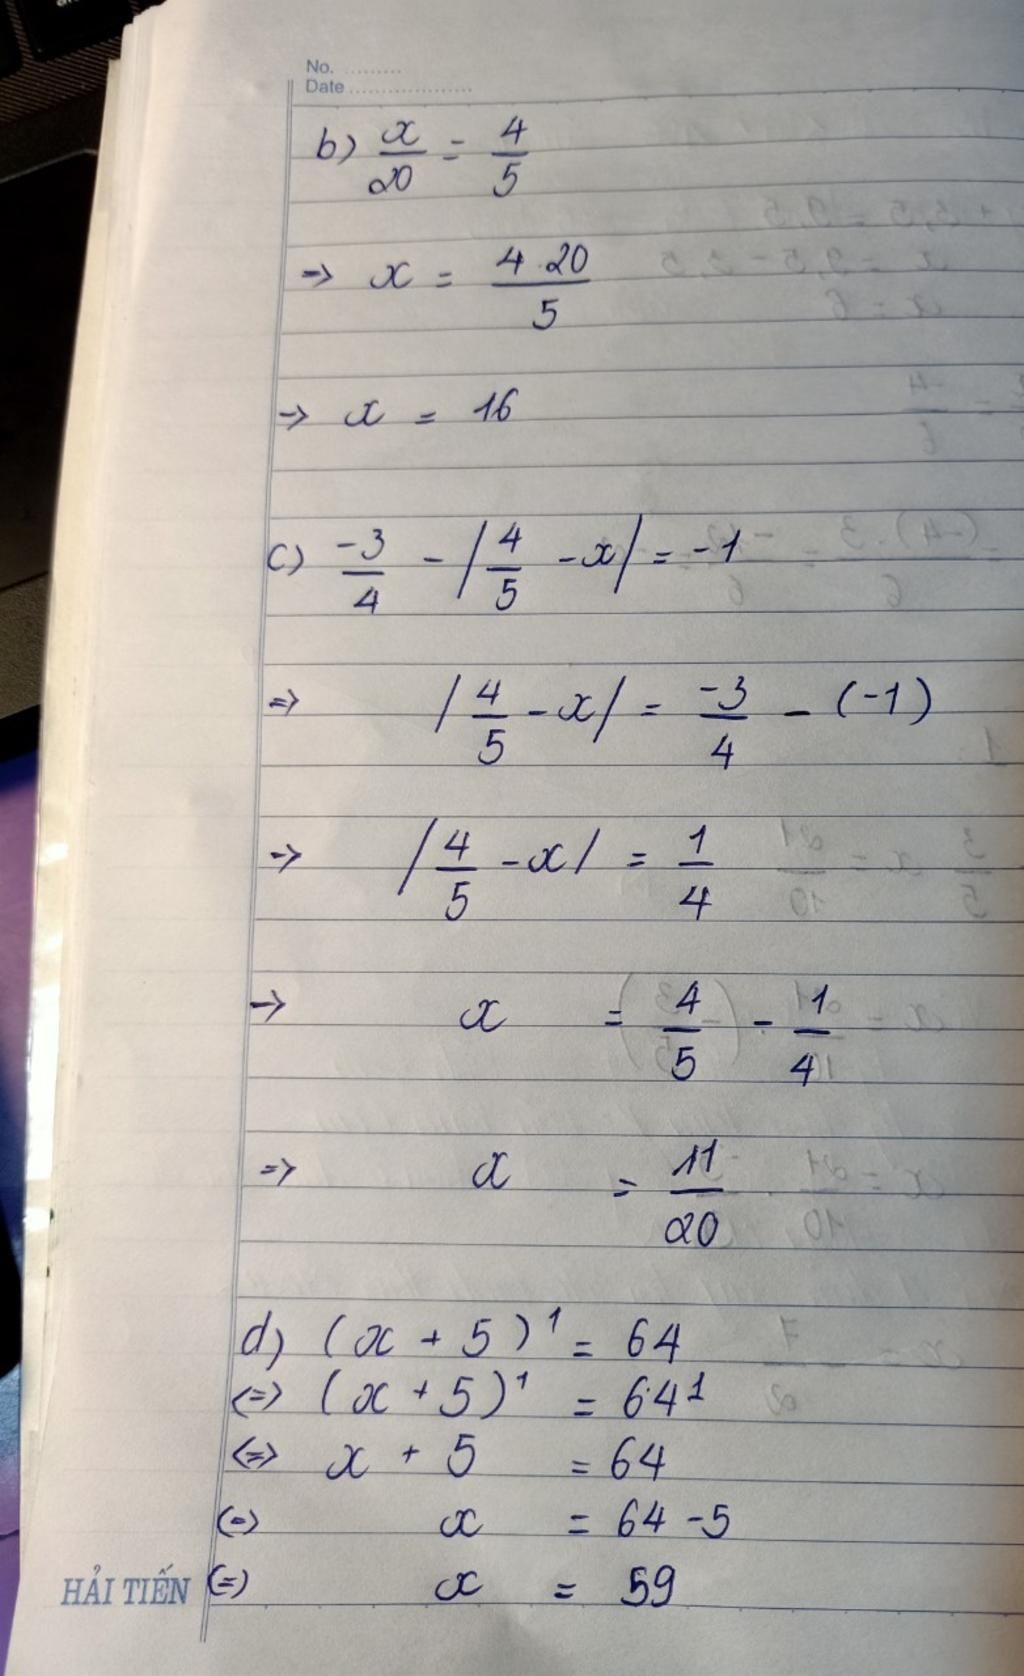 No. ........
Date ....................
b) x/20 = 4/5
=> x = 4.20/5
=> x = 16
c) -3/4 - |4/5 - x| = -1
=> |4/5 - x| = -3/4 - (-1)
=> |4/5 - x| = 1/4
=> x = 4/5 - 1/4
=> x = 11/20
d) (x + 5)¹ = 64
<=> (x + 5)¹ = 64¹
<=> x + 5 = 64
<=> x = 64 - 5
<=> x = 59
HẢI TIẾN